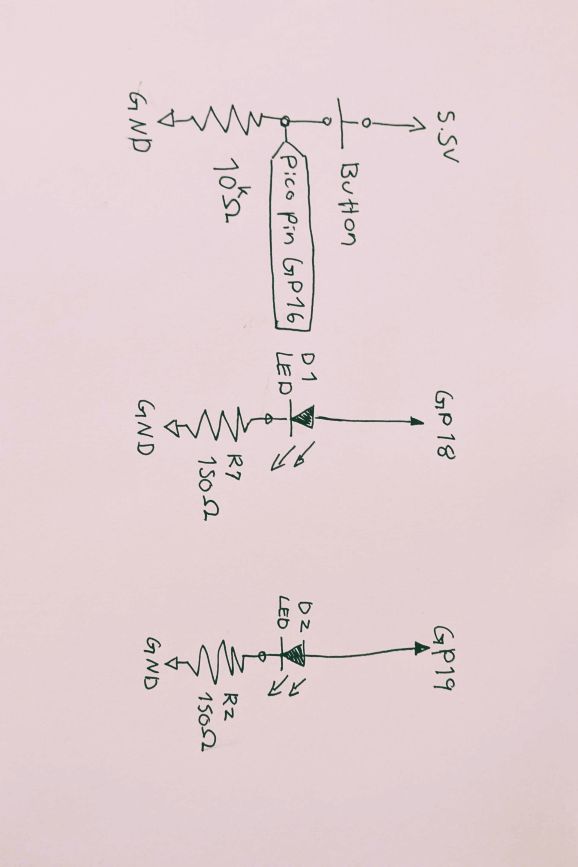 5.5V
Button
Pico pin GP16
10kΩ
GND
GP18
D1
LED
R1
150Ω
GND
GP19
D2
LED
R2
150Ω
GND